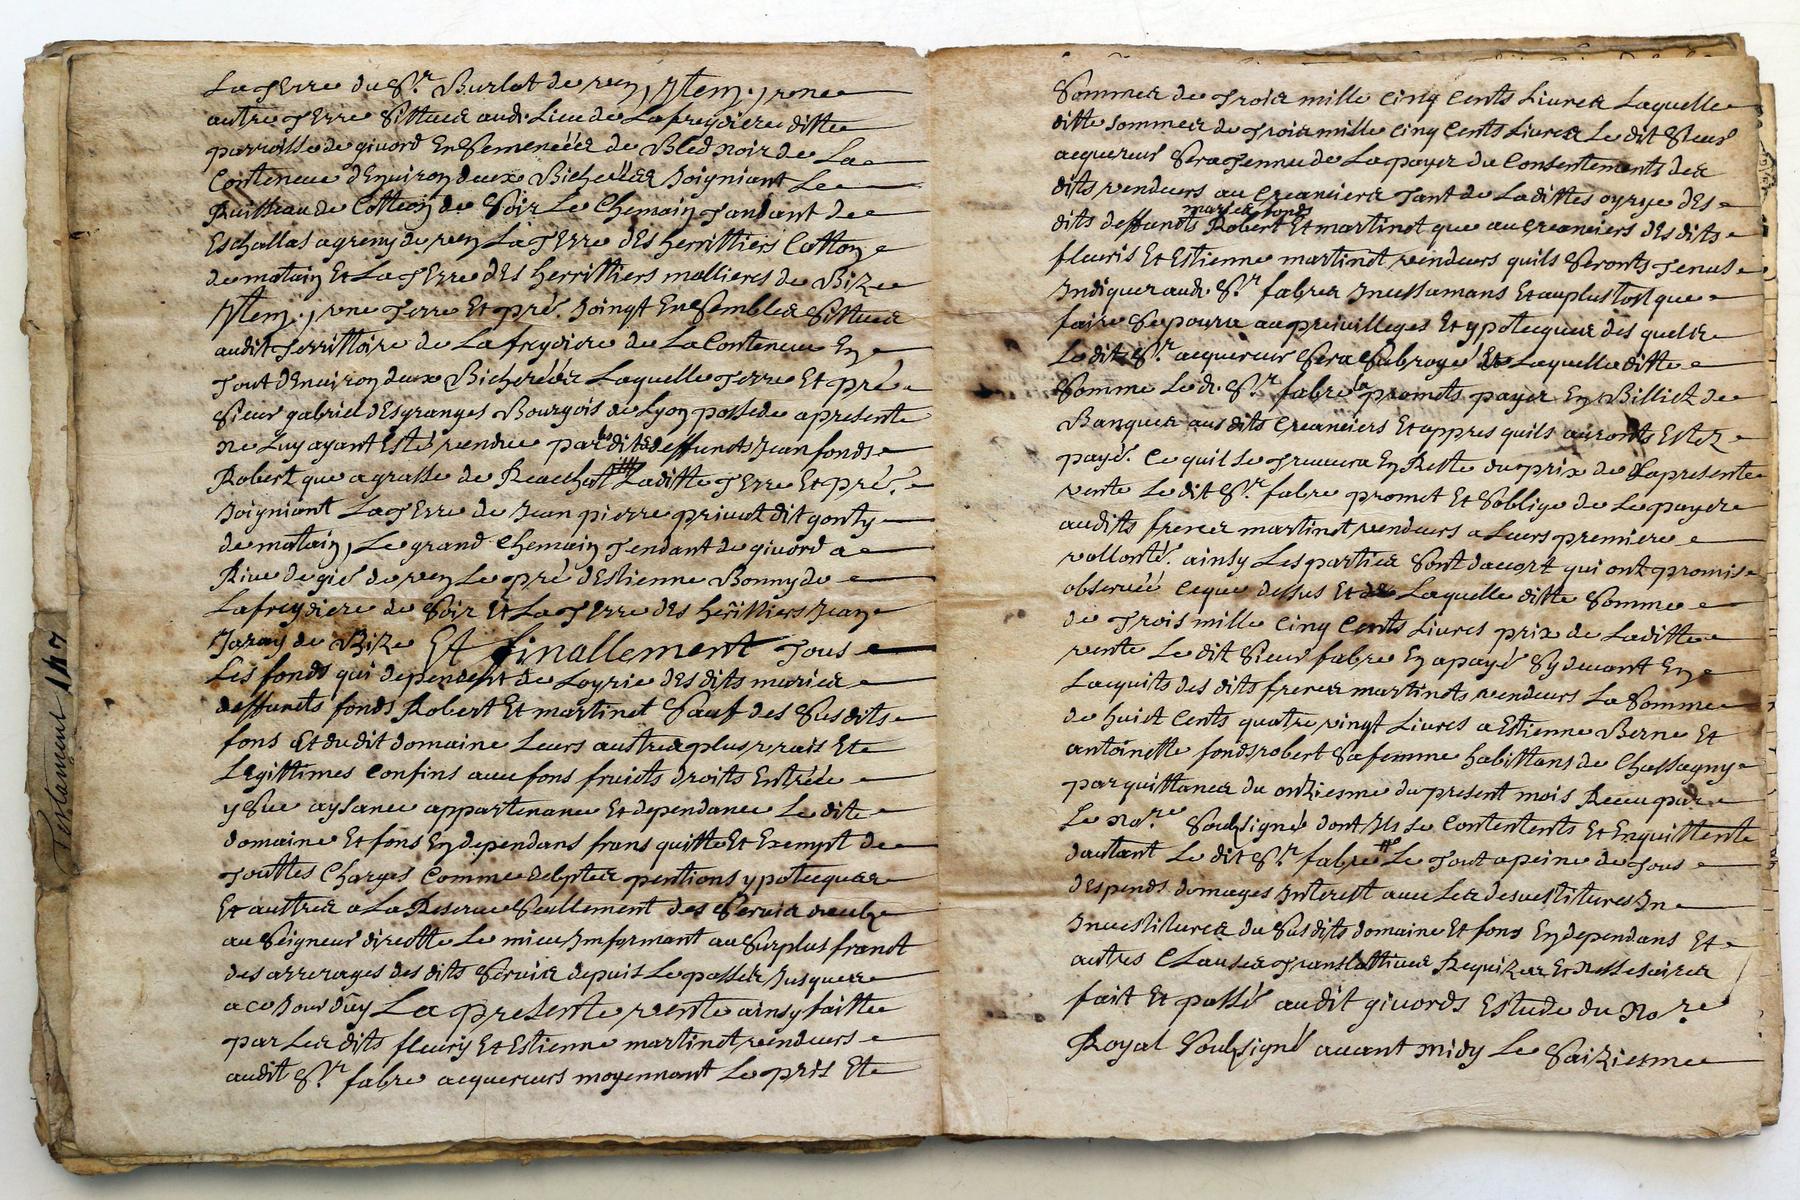 La Terre du Sr. Burlat de ven, Ytem, une
autre Terre Sittuee audi. Lieu de Lafreydiere ditte
parroisse de givord EnSemencéér de Bled noir de La
Conteneue d'Environ deux Bicheréér Joigniant Le
Ruisseau de Cotteon de Soir Le Chemain Tandant de
Eschallas a greny de ven La Terre dEs herrittiers Cotton
de matain Et La Terre dEs herrittiers mollieres de Bize
Ytem, une Terre Et pré. Joingt EnSembler Sittuer
audit Territtoire de Lafreydiere de La Conteneue En
Tout d'Environ deux Bicheréér Laquelle Terre Et pré
Sieur gabriel dEsgranges Bourgois de Lyon possede apresente
ne Luy ayant Esté vendue par les dits deffunts Jean fonds
Robert que a grasse de Reachatt Laditte Terre Et pré.
Joigniant La Terre de Jean pierre privat dit gonty
de matain, Le grand Chemain Tendant de givord a
Rive de gié de ven Le pré d'Estienne Bonny de
Lafreydiere de Soir Et La Terre des herittiers Jean
Jaray de Bize Et finallement Tous
Les fonds qui dependent de Loyrie des dits marier
deffuncts fonds Robert Et martinot Sauf des Susdits
fons Et du dit domaine Leurs austres plus vrais Et
Legittimes Confins avec fons fruicts droits Entréé
ySue aysance appartenance Et dependance Le dit
domaine Et fons En dependans frans quitte Et Exempt de
Touttes Charges Comme debpter pentions ypotecquer
Et autrer a La Reserve Seullement des Servir deubz
au Seigneur directte Le mieu Jmformant au Surplus franct
des arrerages des dits Servir depuis Le passer Jusquer
a ce Jourd'uy La presente vente ainsy faitte
par Ler dits fleury Et Estienne martinot vendeurs
audit Sr fabre acquereurs moyennant Le pris Et
Sommer de Troir mille Cinq Cents Livrer Laquelle
ditte sommer de Troir mille Cinq Cents Livrer Le dit Sieur
acquereur Sera Tennu de La payer du Consentements der
dits vendeurs au Creancierr Tant de Laditte oyrye dEs
marier fonds
dits deffunts Robert Et martinot que au Creanciers dEs dits
fleuris Et Estienne martinot vendeurs quils Seronts Tenus
Jndiquer audi. Sr fabrer Jncessamans Et au plus Tost que
faire Se pourra au previlleges Et ypotecquer des quelr
Le dit Sr acquereur Sera Subrogé Et Laquelle ditte
Somme Le di. Sr fabre la promets payer En Billiet de
Banquer aus dits Creanciers Et appres quils auronts Estez
payé. Ce quil Se Treuvera En Reste du prix de La presente
vente Le dit Sr. fabre promet Et Soblige de Le payer
audits frerer martinot vendeurs a Leurs premiere
vollonté. ainsy Les partier Sont dacort qui ont promis
observéé Ceque dessus Et de Laquelle ditte Somme
de Trois mille Cinq Cents Livres prix de Laditte
vente Le dit Sieur fabre En a payé Sy devant En
Lacquits des dits frerer martinots vendeurs La Somme
de huict Cents quatre vingt Livres a Estienne Berne Et
antoinette fonds robert Sa femme habittans de Chassagny
par quittancer du onziesme du present mois Receu par
Le Nore Soubsigné dont Jls Se Contentents Et Enquittente
dautant Le dit Sr. fabre Le Tout a peine de Tous
despends domages Jnterest avec Ler desvestitures Jn
Jnvestiturer du Susdits domaine Et fons En dependans Et
autres Clauser Translattiver Requizer Et Nessesairer
fait Et passé audit givords Estude du Nore
Royal Soubsigné avant midy Le Saiziesme
Testament 147